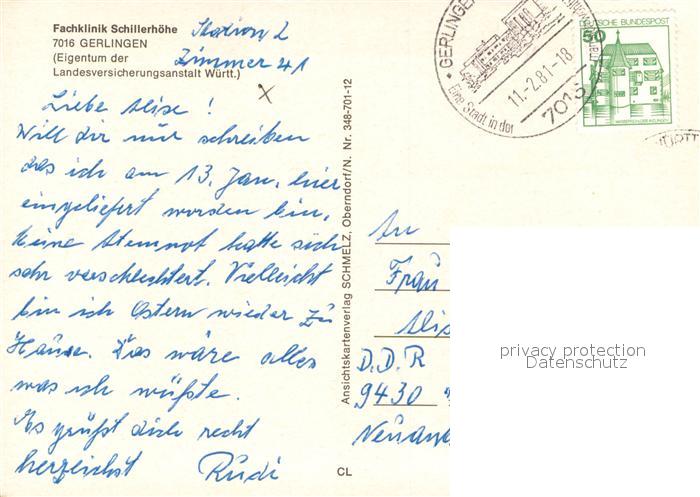 Fachklinik Schillerhöhe
7016 GERLINGEN
(Eigentum der
Landesversicherungsanstalt Württ.)
Station 2
Zimmer 41
Liebe Alise!
Will dir nur schreiben
das ich am 13. Jan. hier
eingeliefert worden bin,
keine Atemnot hatte sich
sehr verschlechtert. Vielleicht
bin ich Ostern wieder zu
Hause. Das wäre alles
was ich wüßte.
Es grüßt dich recht
herzeichst Rudi
Ansichtskartenverlag SCHMELZ, Oberndorf/N. Nr. 348-701-12
CL
GERLINGEN
Eine Stadt in der
11.-2.81-18
7016
DEUTSCHE BUNDESPOST
50
WASSERSCHLOSS INZLINGEN
WÜRTT
An
Frau
Alis
D.D.R
9430
Neuan
privacy protection
Datenschutz